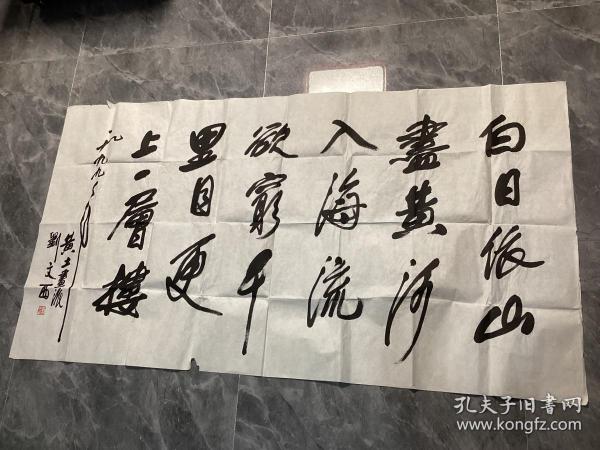 白日依山
盡黄河
入海流
欲窮千
里目更
上一層樓
九九
黄土畫派
劉文西
孔夫子旧书网
www.kongfz.com